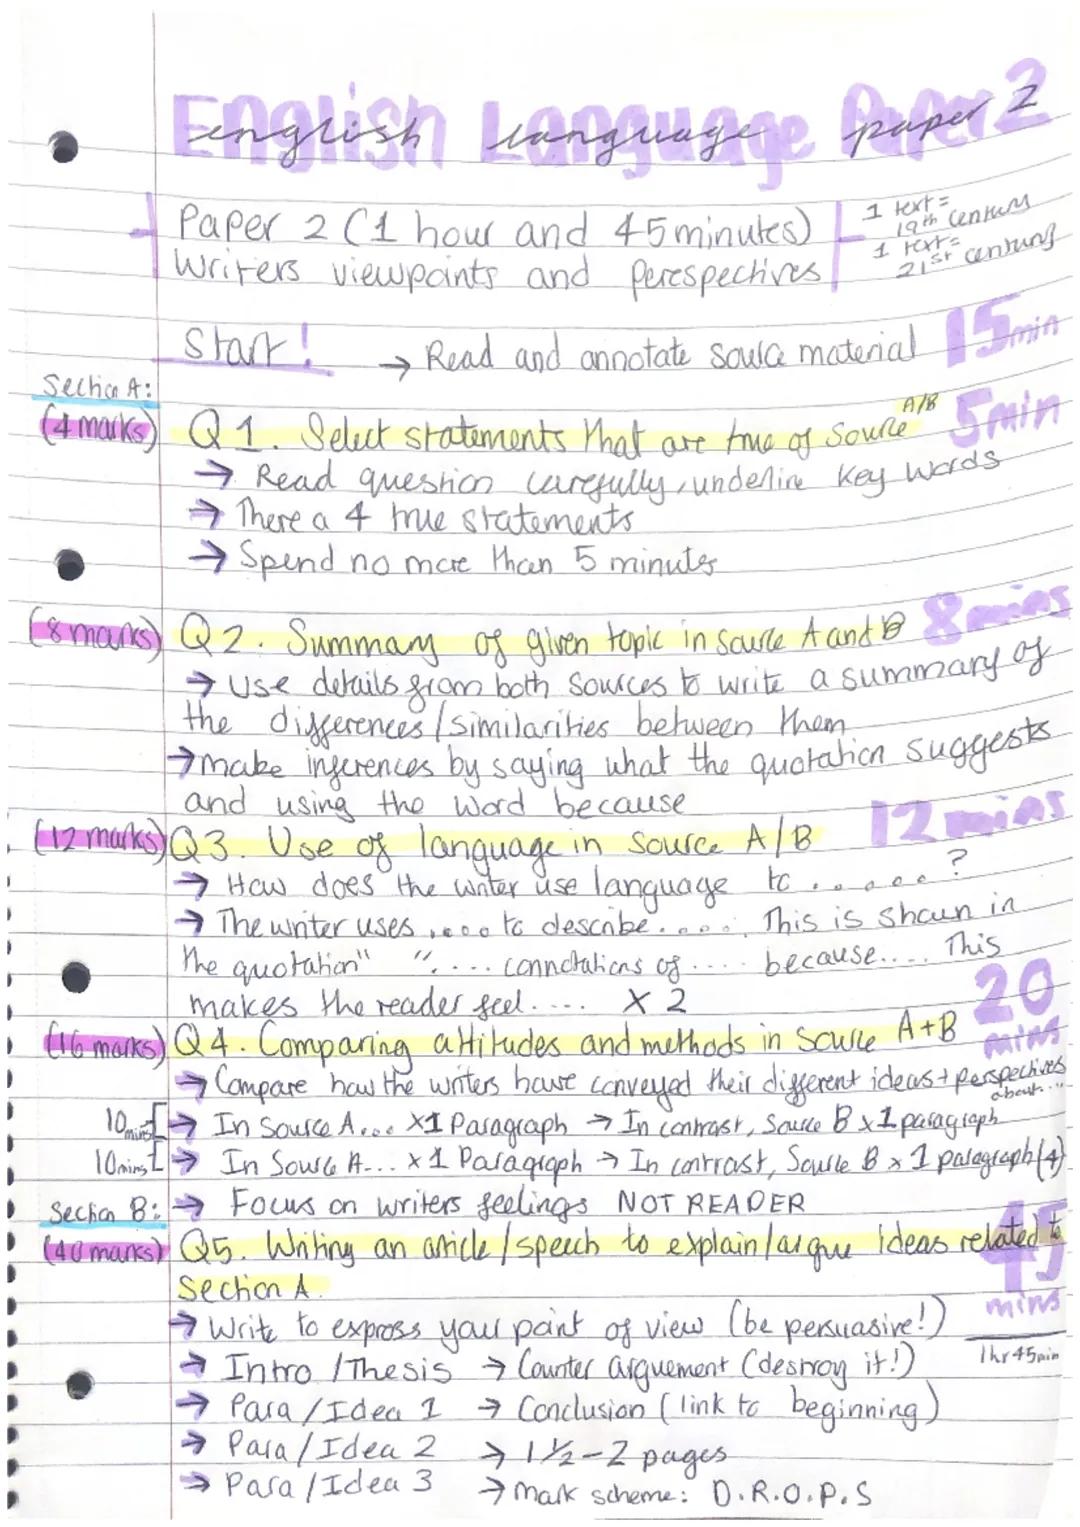 English Language Paper 2
english language paper 2
Paper 2 (1 hour and 45 minutes)
Writers viewpoints and perespectives
1 text =
19th century
1 text =
21st century
Start! → Read and annotate source material 15 min
Section A:
(4 marks) Q1. Select statements that are true of Source A/B 5 min
→ Read question carefully, underline key words
→ There a 4 true statements
→ Spend no more than 5 minutes
(8 marks) Q2. Summary of given topic in source A and B 8 mins
→ Use details from both sources to write a summary of
the differences/similarities between them
→ make inferences by saying what the quotation suggests
and using the word because
(12 marks) Q3. Use of language in source A/B 12 mins
→ How does the writer use language to ......?
→ The writer uses .... to describe..... This is shown in
the quotation" ".... connotations of .... because.... This
makes the reader feel.... x 2
(16 marks) Q4. Comparing attitudes and methods in source A+B 20 mins
→ Compare how the writers have conveyed their different ideas + perspectives about..."
10 mins → In Source A... x1 Paragraph → In contrast, Source B x 1 paragraph
10 mins → In Source A... x 1 Paragraph → In contrast, Source B x 1 paragraph (4)
→ Focus on writers feelings NOT READER
Section B:
(40 marks) Q5. Writing an article/speech to explain/argue ideas related to 45 mins
Section A.
→ Write to express your point of view (be persuasive!)
1hr 45min
→ Intro/Thesis → Counter arguement (destroy it!)
→ Para/Idea 1 → Conclusion (link to beginning)
→ Para/Idea 2 → 1½-2 pages
→ Para/Idea 3 → mark scheme: D.R.O.P.S